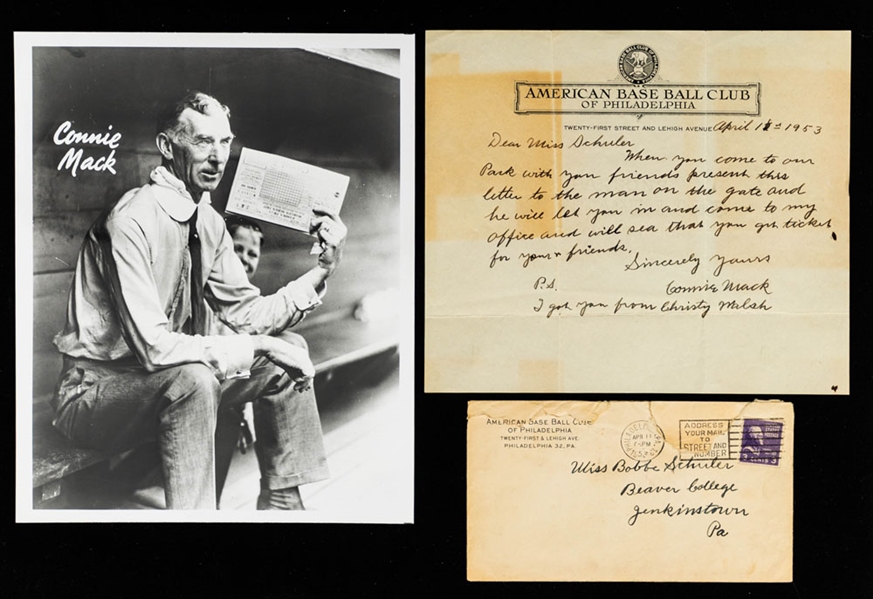 Connie
Mack
AMERICAN BASE BALL CLUB
OF PHILADELPHIA
TWENTY-FIRST STREET AND LEHIGH AVENUE
April 1953
Dear Miss Schuler
When you come to our
Park with you friends present this
letter to the man on the gate and
he will let you in and come to my
office and will sea that you get ticket
for your friends.
Sincerely yours
Connie Mack
P.S.
I got you from Christy Walsh
AMERICAN BASE BALL CLUB
OF PHILADELPHIA
TWENTY-FIRST & LEHIGH AVE.
PHILADELPHIA 32, PA.
APR 11
7-PM
ADDRESS
YOUR MAIL
TO
STREET AND
NUMBER
3 CENTS 3
Miss Bobbe Schuler
Beaver College
Jenkinstown
Pa